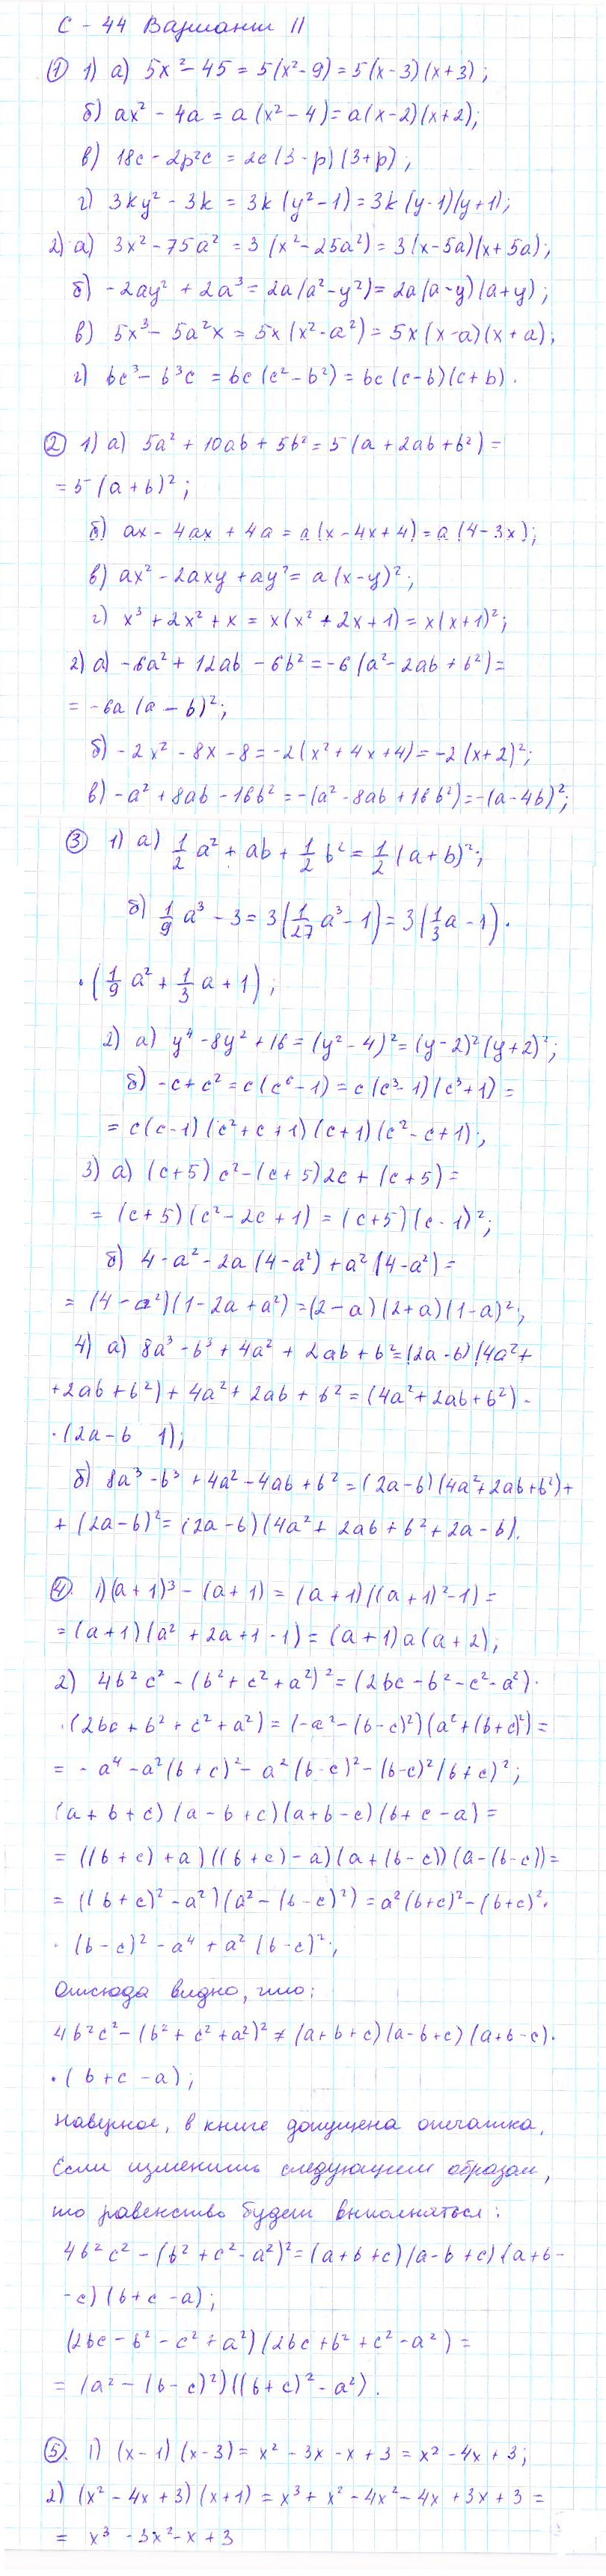 С - 44 Вариант 11
① 1) а) 5x² - 45 = 5(x² - 9) = 5(x - 3)(x + 3);
б) ax² - 4a = a(x² - 4) = a(x - 2)(x + 2);
в) 18c - 2p²c = 2c(3 - p)(3 + p);
г) 3ky² - 3k = 3k(y² - 1) = 3k(y - 1)(y + 1);
2) а) 3x² - 75a² = 3(x² - 25a²) = 3(x - 5a)(x + 5a);
б) -2ay² + 2a³ = 2a(a² - y²) = 2a(a - y)(a + y);
в) 5x³ - 5a²x = 5x(x² - a²) = 5x(x - a)(x + a);
г) bc³ - b³c = bc(c² - b²) = bc(c - b)(c + b).
② 1) а) 5a² + 10ab + 5b² = 5(a + 2ab + b²) =
= 5(a + b)²;
б) ax - 4ax + 4a = a(x - 4x + 4) = a(4 - 3x);
в) ax² - 2axy + ay² = a(x - y)²;
г) x³ + 2x² + x = x(x² + 2x + 1) = x(x + 1)²;
2) а) -6a² + 12ab - 6b² = -6(a² - 2ab + b²) =
= -6a(a - b)²;
б) -2x² - 8x - 8 = -2(x² + 4x + 4) = -2(x + 2)²;
в) -a² + 8ab - 16b² = -(a² - 8ab + 16b²) = -(a - 4b)²;
③ 1) а) 1/2 a² + ab + 1/2 b² = 1/2 (a + b)²;
б) 1/9 a³ - 3 = 3(1/27 a³ - 1) = 3(1/3 a - 1) ·
· (1/9 a² + 1/3 a + 1);
2) а) y⁴ - 8y² + 16 = (y² - 4)² = (y - 2)²(y + 2)²;
б) -c + c² = c(c⁶ - 1) = c(c³ - 1)(c³ + 1) =
= c(c - 1)(c² + c + 1)(c + 1)(c² - c + 1);
3) а) (c + 5)c² - (c + 5)2c + (c + 5) =
= (c + 5)(c² - 2c + 1) = (c + 5)(c - 1)²;
б) 4 - a² - 2a(4 - a²) + a²(4 - a²) =
= (4 - a²)(1 - 2a + a²) = (2 - a)(2 + a)(1 - a)²;
4) а) 8a³ - b³ + 4a² + 2ab + b² = (2a - b)(4a² +
+ 2ab + b²) + 4a² + 2ab + b² = (4a² + 2ab + b²) ·
· (2a - b 1);
б) 8a³ - b³ + 4a² - 4ab + b² = (2a - b)(4a² + 2ab + b²) +
+ (2a - b)² = (2a - b)(4a² + 2ab + b² + 2a - b).
④. 1) (a + 1)³ - (a + 1) = (a + 1)((a + 1)² - 1) =
= (a + 1)(a² + 2a + 1 - 1) = (a + 1)a(a + 2);
2) 4b²c² - (b² + c² + a²)² = (2bc - b² - c² - a²) ·
· (2bc + b² + c² + a²) = (-a² - (b - c)²)(a² + (b + c)²) =
= - a⁴ - a²(b + c)² - a²(b - c)² - (b - c)²(b + c)²;
(a + b + c)(a - b + c)(a + b - c)(b + c - a) =
= ((b + c) + a)((b + c) - a)(a + (b - c))(a - (b - c)) =
= ((b + c)² - a²)(a² - (b - c)²) = a²(b + c)² - (b + c)² ·
· (b - c)² - a⁴ + a²(b - c)²;
Отсюда видно, что:
4b²c² - (b² + c² + a²)² ≠ (a + b + c)(a - b + c)(a + b - c) ·
· (b + c - a);
Наверное, в книге допущена опечатка.
Если изменить следующим образом,
то равенство будет выполняться:
4b²c² - (b² + c² - a²)² = (a + b + c)(a - b + c)(a + b -
- c)(b + c - a);
(2bc - b² - c² + a²)(2bc + b² + c² - a²) =
= (a² - (b - c)²)((b + c)² - a²).
⑤. 1) (x - 1)(x - 3) = x² - 3x - x + 3 = x² - 4x + 3;
2) (x² - 4x + 3)(x + 1) = x³ + x² - 4x² - 4x + 3x + 3 =
= x³ - 3x² - x + 3